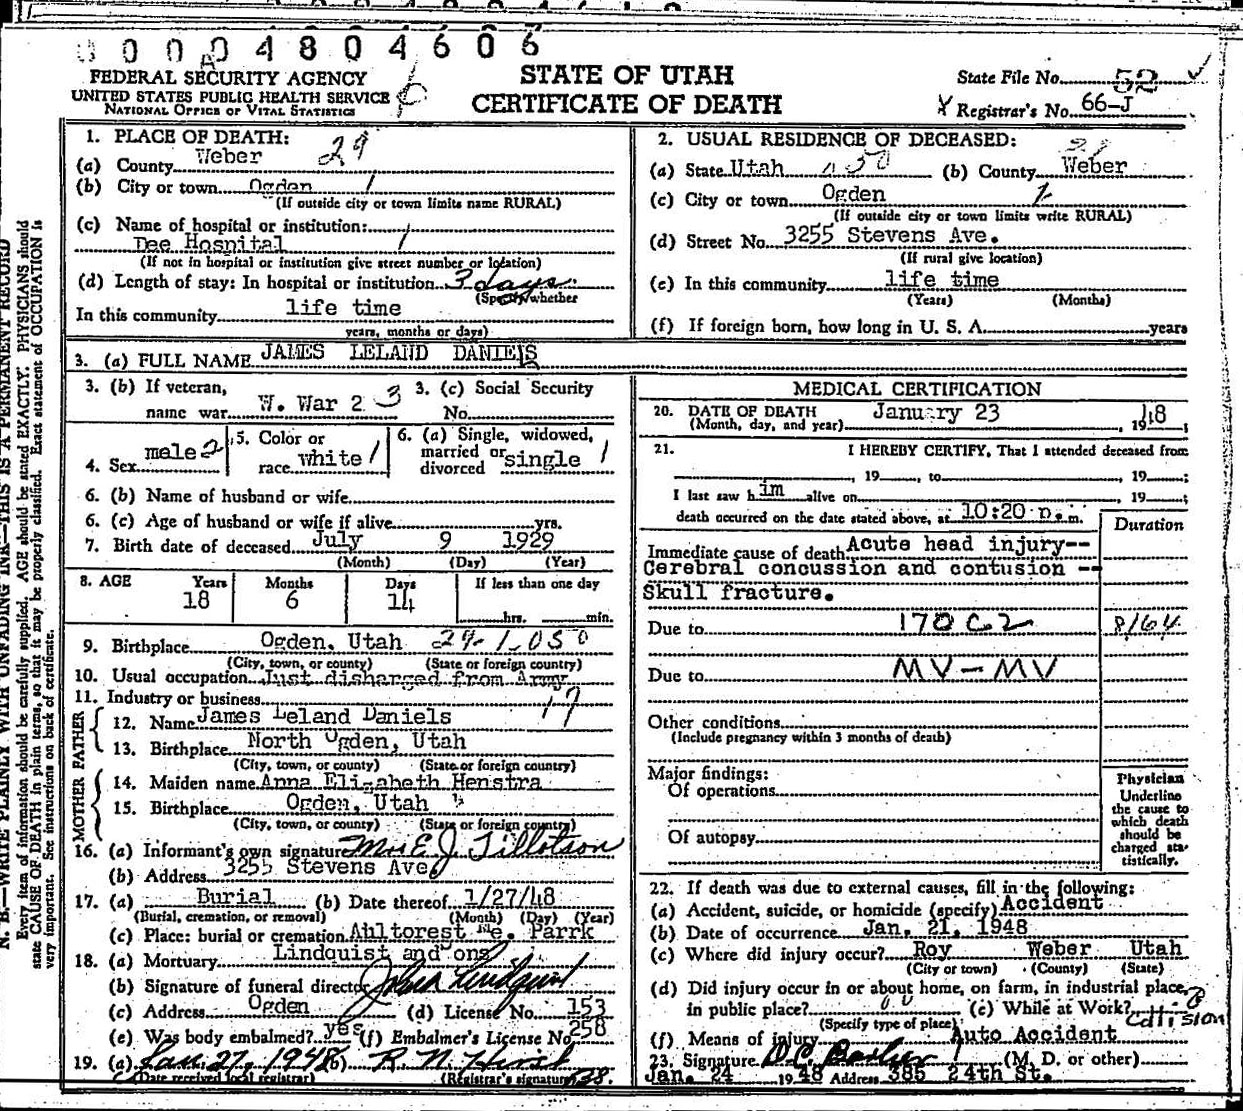 0 0 0 0 4 8 0 4 6 0 6
FEDERAL SECURITY AGENCY
UNITED STATES PUBLIC HEALTH SERVICE
NATIONAL OFFICE OF VITAL STATISTICS
STATE OF UTAH
CERTIFICATE OF DEATH
State File No. 52
Registrar's No. 66-J
N. B.—WRITE PLAINLY WITH UNFADING INK—THIS IS A PERMANENT RECORD
Every item of information should be carefully supplied. AGE should be stated EXACTLY. PHYSICIANS should
state CAUSE OF DEATH in plain terms, so that it may be properly classified. Exact statement of OCCUPATION is
very important. See instructions on back of certificate.
1. PLACE OF DEATH:
(a) County Weber 29
(b) City or town Ogden 1
(If outside city or town limits name RURAL)
(c) Name of hospital or institution:
Dee Hospital 1
(If not in hospital or institution give street number or location)
(d) Length of stay: In hospital or institution 3 days
(Specify whether
In this community life time
years, months or days)
2. USUAL RESIDENCE OF DECEASED:
(a) State Utah (b) County Weber
(c) City or town Ogden
(If outside city or town limits write RURAL)
(d) Street No. 3255 Stevens Ave.
(If rural give location)
(e) In this community life time
(Years) (Months)
(f) If foreign born, how long in U. S. A. years
3. (a) FULL NAME JAMES LELAND DANIELS
3. (b) If veteran,
name war W. War 2 3
3. (c) Social Security
No.
4. Sex male 2
5. Color or
race white 1
6. (a) Single, widowed,
married or
divorced single 1
6. (b) Name of husband or wife
6. (c) Age of husband or wife if alive yrs.
7. Birth date of deceased July 9 1929
(Month) (Day) (Year)
8. AGE Years Months Days If less than one day
18 6 14 hrs. min.
9. Birthplace Ogden, Utah 29-1-050
(City, town, or county) (State or foreign country)
10. Usual occupation Just disharged from Army
11. Industry or business 17
FATHER
12. Name James Leland Daniels
13. Birthplace North Ogden, Utah
(City, town, or county) (State or foreign country)
MOTHER
14. Maiden name Anna Elizabeth Henstra
15. Birthplace Ogden, Utah
(City, town, or county) (State or foreign country)
16. (a) Informant's own signature Mrs E. J. Tillotson
(b) Address 3255 Stevens Ave.
17. (a) Burial (b) Date thereof 1/27/48
(Burial, cremation, or removal) (Month) (Day) (Year)
(c) Place: burial or cremation Ahltorest Me. Parrk
18. (a) Mortuary Lindquist and ons
(b) Signature of funeral director John Lindquist
(c) Address Ogden (d) License No. 153
(e) Was body embalmed? yes (f) Embalmer's License No. 258
19. (a) Jan. 27, 1948 (b) R. N. Hirst
(Date received local registrar) (Registrar's signature) 38.
MEDICAL CERTIFICATION
20. DATE OF DEATH January 23, 1948;
(Month, day, and year)
21. I HEREBY CERTIFY, That I attended deceased from
, 19 , to , 19 ;
I last saw him alive on , 19 ;
death occurred on the date stated above, at 10:20 p.m.
Duration
Immediate cause of death Acute head injury--
Cerebral concussion and contusion --
Skull fracture.
Due to 170 C2 8/64
Due to MV-MV
Other conditions
(Include pregnancy within 3 months of death)
Major findings:
Of operations
Of autopsy
Physician
Underline
the cause to
which death
should be
charged sta-
tistically.
22. If death was due to external causes, fill in the following:
(a) Accident, suicide, or homicide (specify) Accident
(b) Date of occurrence Jan. 21, 1948
(c) Where did injury occur? Roy Weber Utah
(City or town) (County) (State)
(d) Did injury occur in or about home, on farm, in industrial place,
in public place? (e) While at Work?
(Specify type of place)
(f) Means of injury Auto Accident Collision
23. Signature (M. D. or other)
Jan. 24 1948 Address 385 24th St.